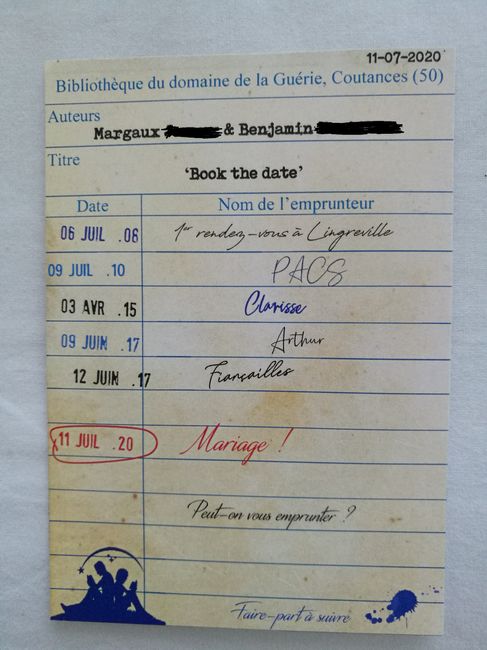 11-07-2020
Bibliothèque du domaine de la Guérie, Coutances (50)
Auteurs
Margaux & Benjamin
Titre
'Book the date'
Date Nom de l'emprunteur
06 JUIL .06 1er rendez-vous à Lingreville
09 JUIL .10 PACS
03 AVR .15 Clarisse
09 JUIN .17 Arthur
12 JUIN .17 Fiançailles
11 JUIL .20 Mariage !
Peut-on vous emprunter ?
Faire-part à suivre